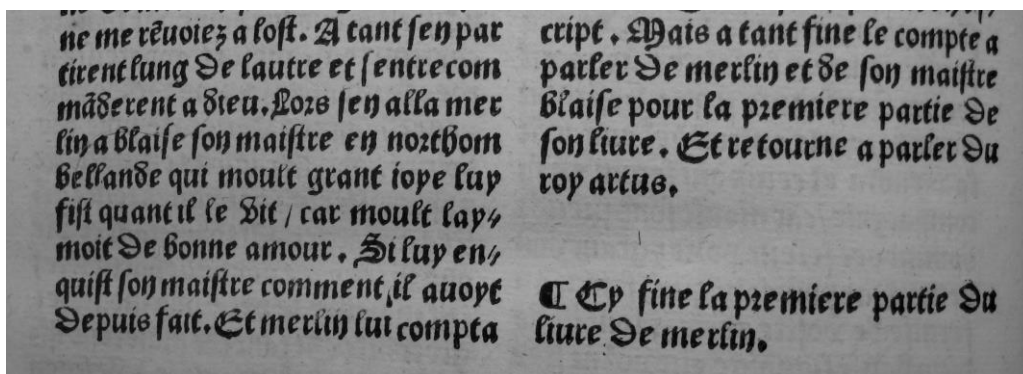 ne me rēuoiez a lost. A tant sen par
tirent lung de lautre et sentrecom
māderent a dieu. Lors sen alla mer
lin a blaise son maistre en northom
bellande qui moult grant ioye luy
fist quant il le vit / car moult lay⸗
moit de bonne amour. Si luy en⸗
quist son maistre comment il auoyt
depuis fait. Et merlin lui compta
cript. Mais a tant fine le compte a
parler de merlin et de son maistre
blaise pour la premiere partie de
son liure. Et retourne a parler du
roy artus.
¶ Cy fine la premiere partie du
liure de merlin.